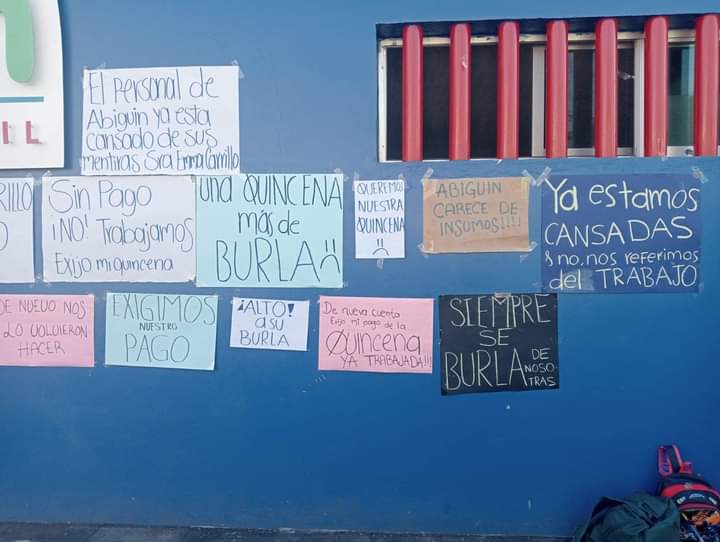 El Personal de
Abiguin ya esta
cansado de sus
mentiras Sra Emma Carrillo
Sin Pago
¡NO! Trabajamos
Exijo mi quincena
una QUINCENA
más de
BURLA
QUEREMOS
NUESTRA
QUINCENA
ABIGUIN
CARECE DE
INSUMOS!!!!
Ya estamos
CANSADAS
& no, nos referimos
del TRABAJO
DE NUEVO NOS
LO VOLVIERON
HACER
EXIGIMOS
NUESTRO
PAGO
¡ALTO!
a su
BURLA
De nueva cuenta
Exijo mi pago de la
Quincena
YA TRABAJADA!!!
SIEMPRE
SE
BURLA DE
NOSO-
TRAS